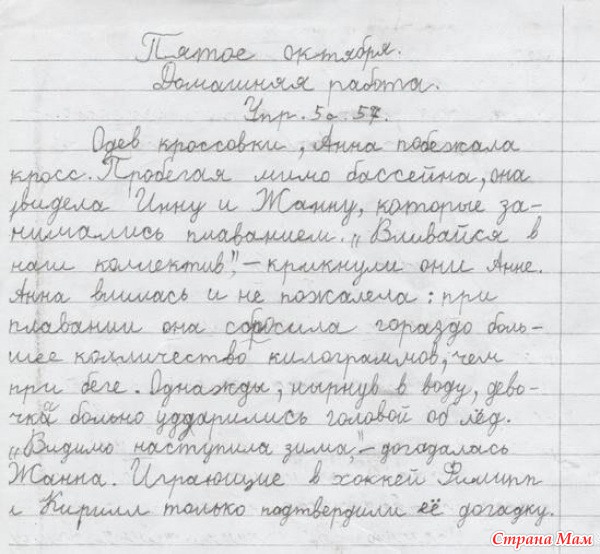 Пятое октября.
Домашняя работа.
Упр. 50. 57.
Одев кроссовки, Анна побежала
кросс. Пробегая мимо бассейна, она
увидела Инну и Жанну, которые за-
нимались плаванием. „Вливайся в
наш коллектив", – крикнули они Анне.
Анна влилась и не пожалела: при
плавании она сбросила гораздо боль-
шее количество килограммов, чем
при беге. Однажды, нырнув в воду, дево-
чки больно ударились головой об лёд.
„Видимо наступила зима," – догадалась
Жанна. Играющие в хоккей Филипп
и Кирилл только подтвердили её догадку.
Страна Мам